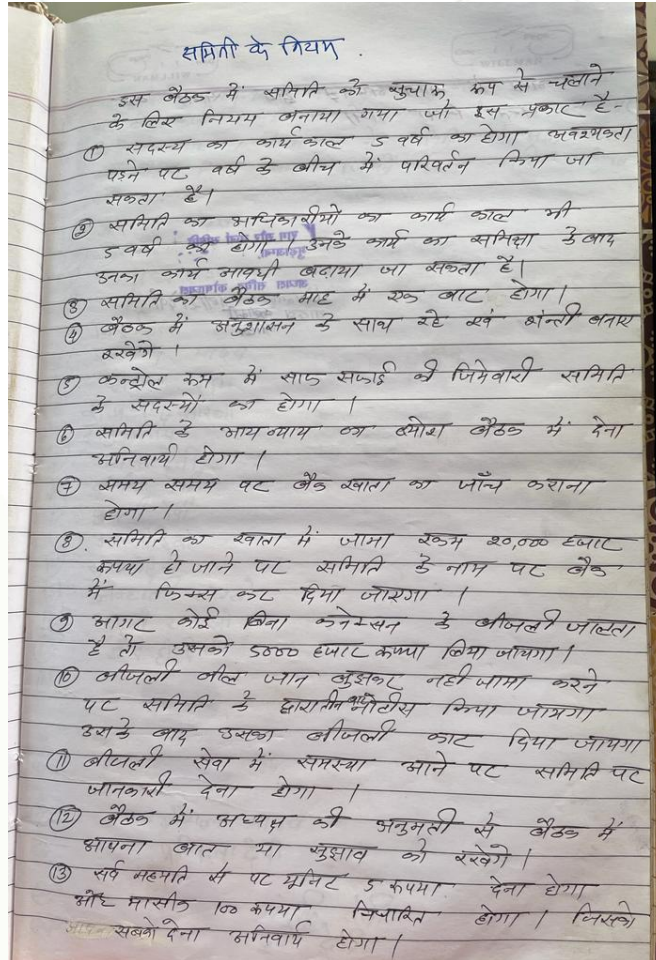 समिती के नियम .
इस बैठक में समिति को सुचारू रूप से चलाने
के लिए नियम बनाया गया जो इस प्रकार है-
① सदस्य का कार्य काल 5 वर्ष का होगा अवश्यकता
पड़ने पर वर्ष के बीच में परिवर्तन किया जा
सकता है।
② समिति का अधिकारीयो का कार्य काल भी
5 वर्ष का होगा । उनके कार्य का समिक्षा के बाद
उनका कार्य आवधी बढाया जा सकता है।
③ समिति का बैठक माह में एक बार होगा।
④ बैठक में अनुशासन के साथ रहे एवं शंन्ती बनाए
रखेगे ।
⑤ कन्ट्रोल रूम में साफ सफाई की जिमेवारी समिति
के सदस्यों का होगा ।
⑥ समिति के आय व्याय का ब्योरा बैठक में देना
अनिवार्य होगा ।
⑦ समय समय पर बैंक खाता का जाँच कराना
होगा ।
⑧. समिति का खाता में जामा रकम 20,000 हजार
रूपया हो जाने पर समिति के नाम पर बैंक
में फिक्स कर दिया जाएगा ।
⑨ आगर कोई बिना कनेक्सन के बीजली जालता
है तो उसको 5000 हजार रूपया लिया जायगा।
⑩ बीजली बील जान बुझकर नही जामा करने
पर समिति के द्वारा तीन बार नोटीस किया जाएगा
उसके बाद उसका बीजली काट दिया जायगा
⑪ बीजली सेवा में समस्या आने पर समिति पर
जानकारी देना होगा ।
⑫ बैठक में अध्यक्ष की अनुमती से बैठक में
आपना बात या सुझाव को रखेगे।
⑬ सर्व सहमति से पर यूनिट 5 रूपया देना होगा
और मासीक 100 रूपया निधारित होगा । जिसको
सबको देना अनिवार्य होगा ।